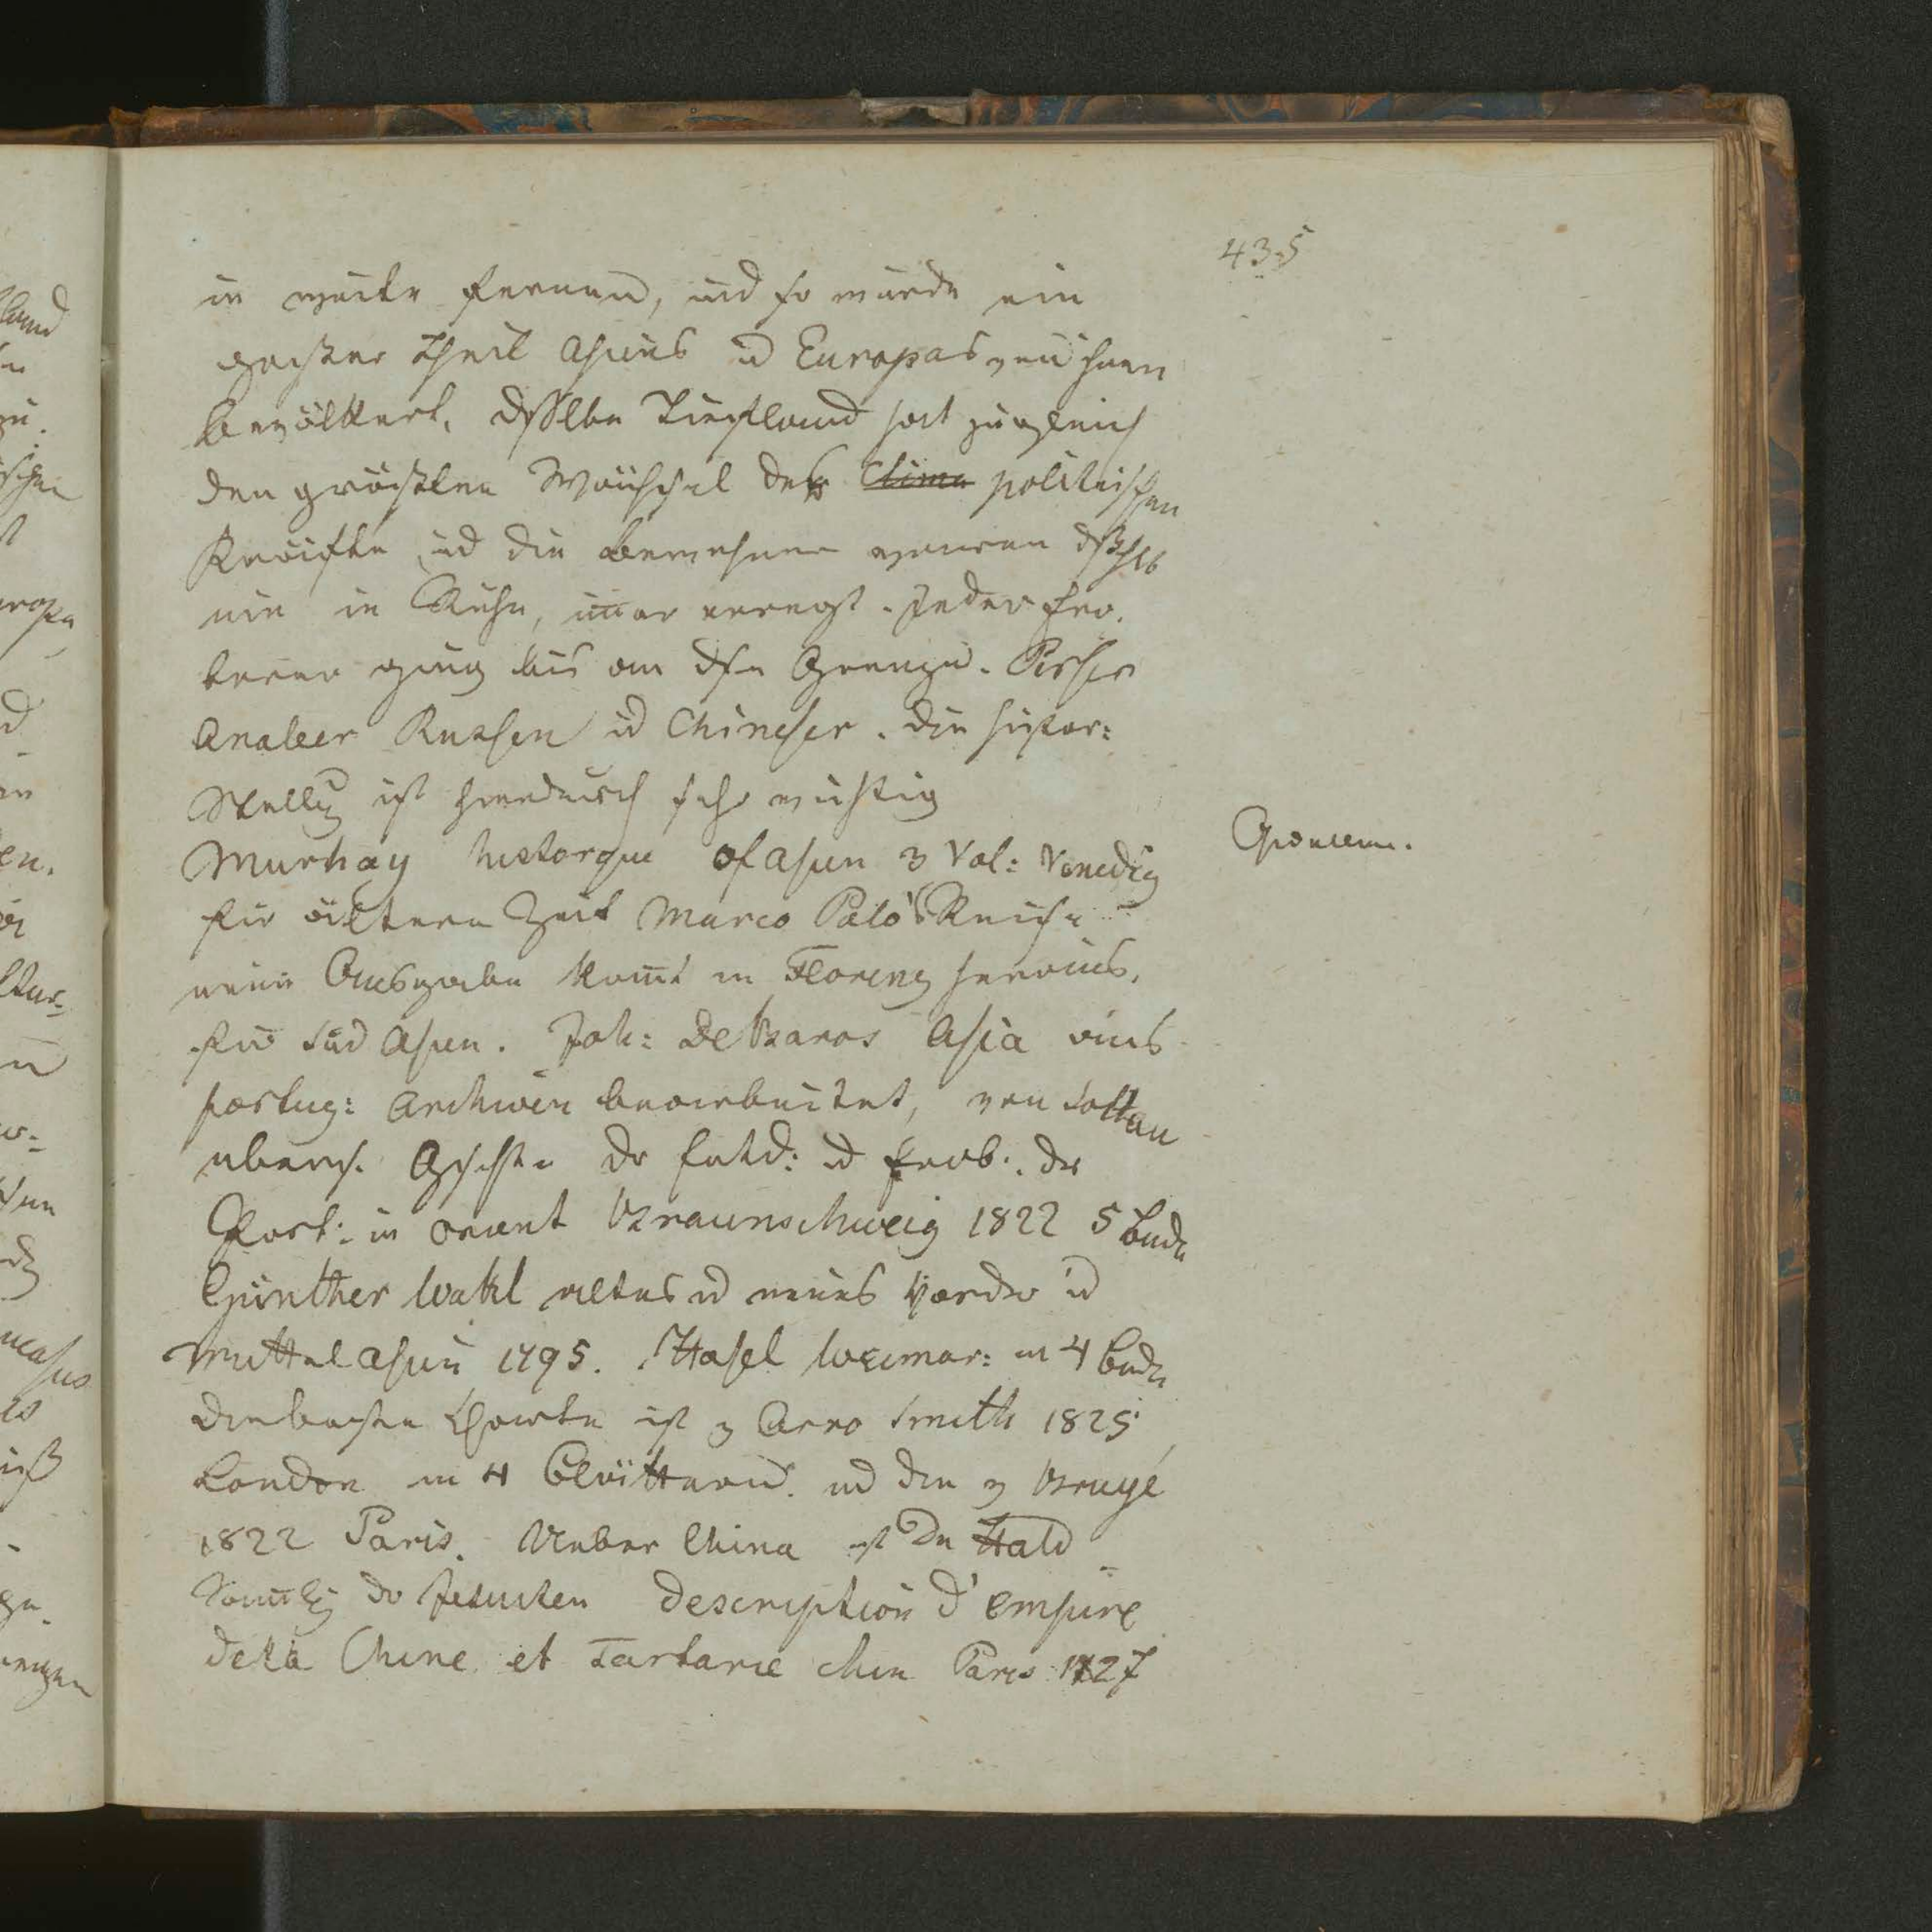 435
in weite Fernen, und so wurde ein
großer Theil Asiens u Europas von ihnen
bevölkert. Dsselbe Tiefland hat zugleich
den größten Wechsel der Clima politischen
Kräfte, und die Bewohner waren dßhlb
nie in Ruhe, imer erregt. Jeder Ero-
berer ging bis an dse Grenze. Perser
Araber Russen ud Chineser. Die histor:
Stellg ist hierdurch sehr wichtig
Murhay historque of asien 3 Vol: Venedig
für ältere Zeit Marco Palo's Reise
neue Ausgabe komt in Florenz heraus.
für Süd Asien. Joh: De Baros Asia aus
portug: Archiven bearbeitet, von Soltau
übers. Gschte der Entd: ud Erob: der
Port: in Orient Braunschweig 1822 5 Bnde
Günther Wahl altes ud neues Vorder ud
Mittelasien 1795. Hasel Weimar: in 4 Bnde
Die beste Charte ist v Arro Smith 1825
London in 4 Blättern. ud die v Bruyé
1822 Paris. Ueber China ist Du Hald
Samlg der Jesuiten Description d'empire
de la Chine et Tartarie chin Paris 1727